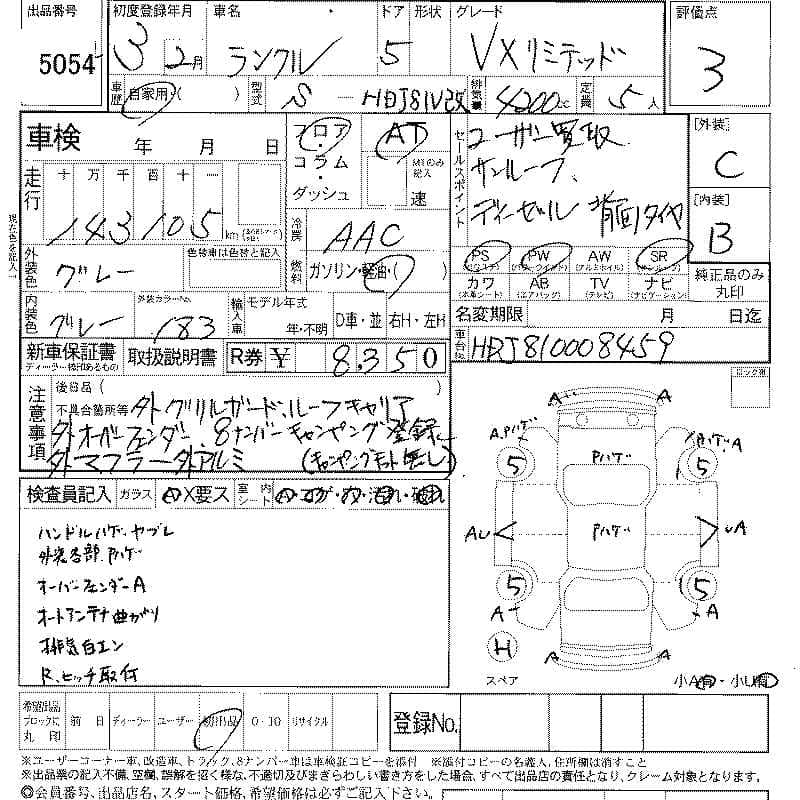 出品番号 5054
初度登録年月 3 2月
車名 ランクル
ドア 5 形状
グレード VXリミテッド
評価点 3
車歴 自家用・( )
型式 S-HDJ81V改
排気量 4200cc
定員 5人
車検 年 月 日
フロア・コラム・ダッシュ
AT
MTのみ記入 速
セールスポイント ユーザー買取
サンルーフ、
ディーゼル 背面タイヤ
[外装] C
[内装] B
走行 十 万 千 百 十 一
143105 km
冷房 AAC
外装色 グレー
色替車は色替と記入
燃料 ガソリン・軽油・( )
PS PW AW SR
(パワステ) (パワーウインド) (アルミホイル) (サンルーフ)
カワ AB TV ナビ
(本革シート) (エアバッグ) (テレビ) (ナビゲーション)
純正品のみ丸印
内装色 グレー
外装カラーNo. 183
輸入車 モデル年式 年・不明
D車・並 右H・左H
名変期限 月 日迄
車台No. HDJ810008459
現在色を記入
新車保証書
ディーラー捺印あるもの
取扱説明書
R券 ¥ 8,350
注意事項 後日品( )
不具合箇所等 外グリルガード、ルーフキャリア
外オーバーフェンダー、8ナンバーキャンピング登録
外マフラー外アルミ (キャンピングキット無し)
検査員記入 ガラス A・X要ス 室内 シート
ハンドルハゲ、ヤブレ
外装各部、Pハゲ
オーバーフェンダーA
オートアンテナ曲がり
排気白エン
R、ヒッチ取付
ロック用
A A
A、Pハゲ Pハゲ Pハゲ、A
5 5
AU Pハゲ UA
5 5
A A
H
A A
スペア
小A有・小U有
希望出品ブロックに丸印
前日 ディーラー ユーザー 初出品 0-10 リサイクル
登録No.
※ユーザーコーナー車、改造車、トラック、8ナンバー車は車検証コピーを添付 ※添付コピーの名義人、住所欄は消すこと
※出品票の記入不備、空欄、誤解を招く様な、不適切及びまぎらわしい書き方をした場合、すべて出品店の責任となり、クレーム対象となります。
◎会員番号、出品店名、スタート価格、希望価格は必ずご記入下さい。